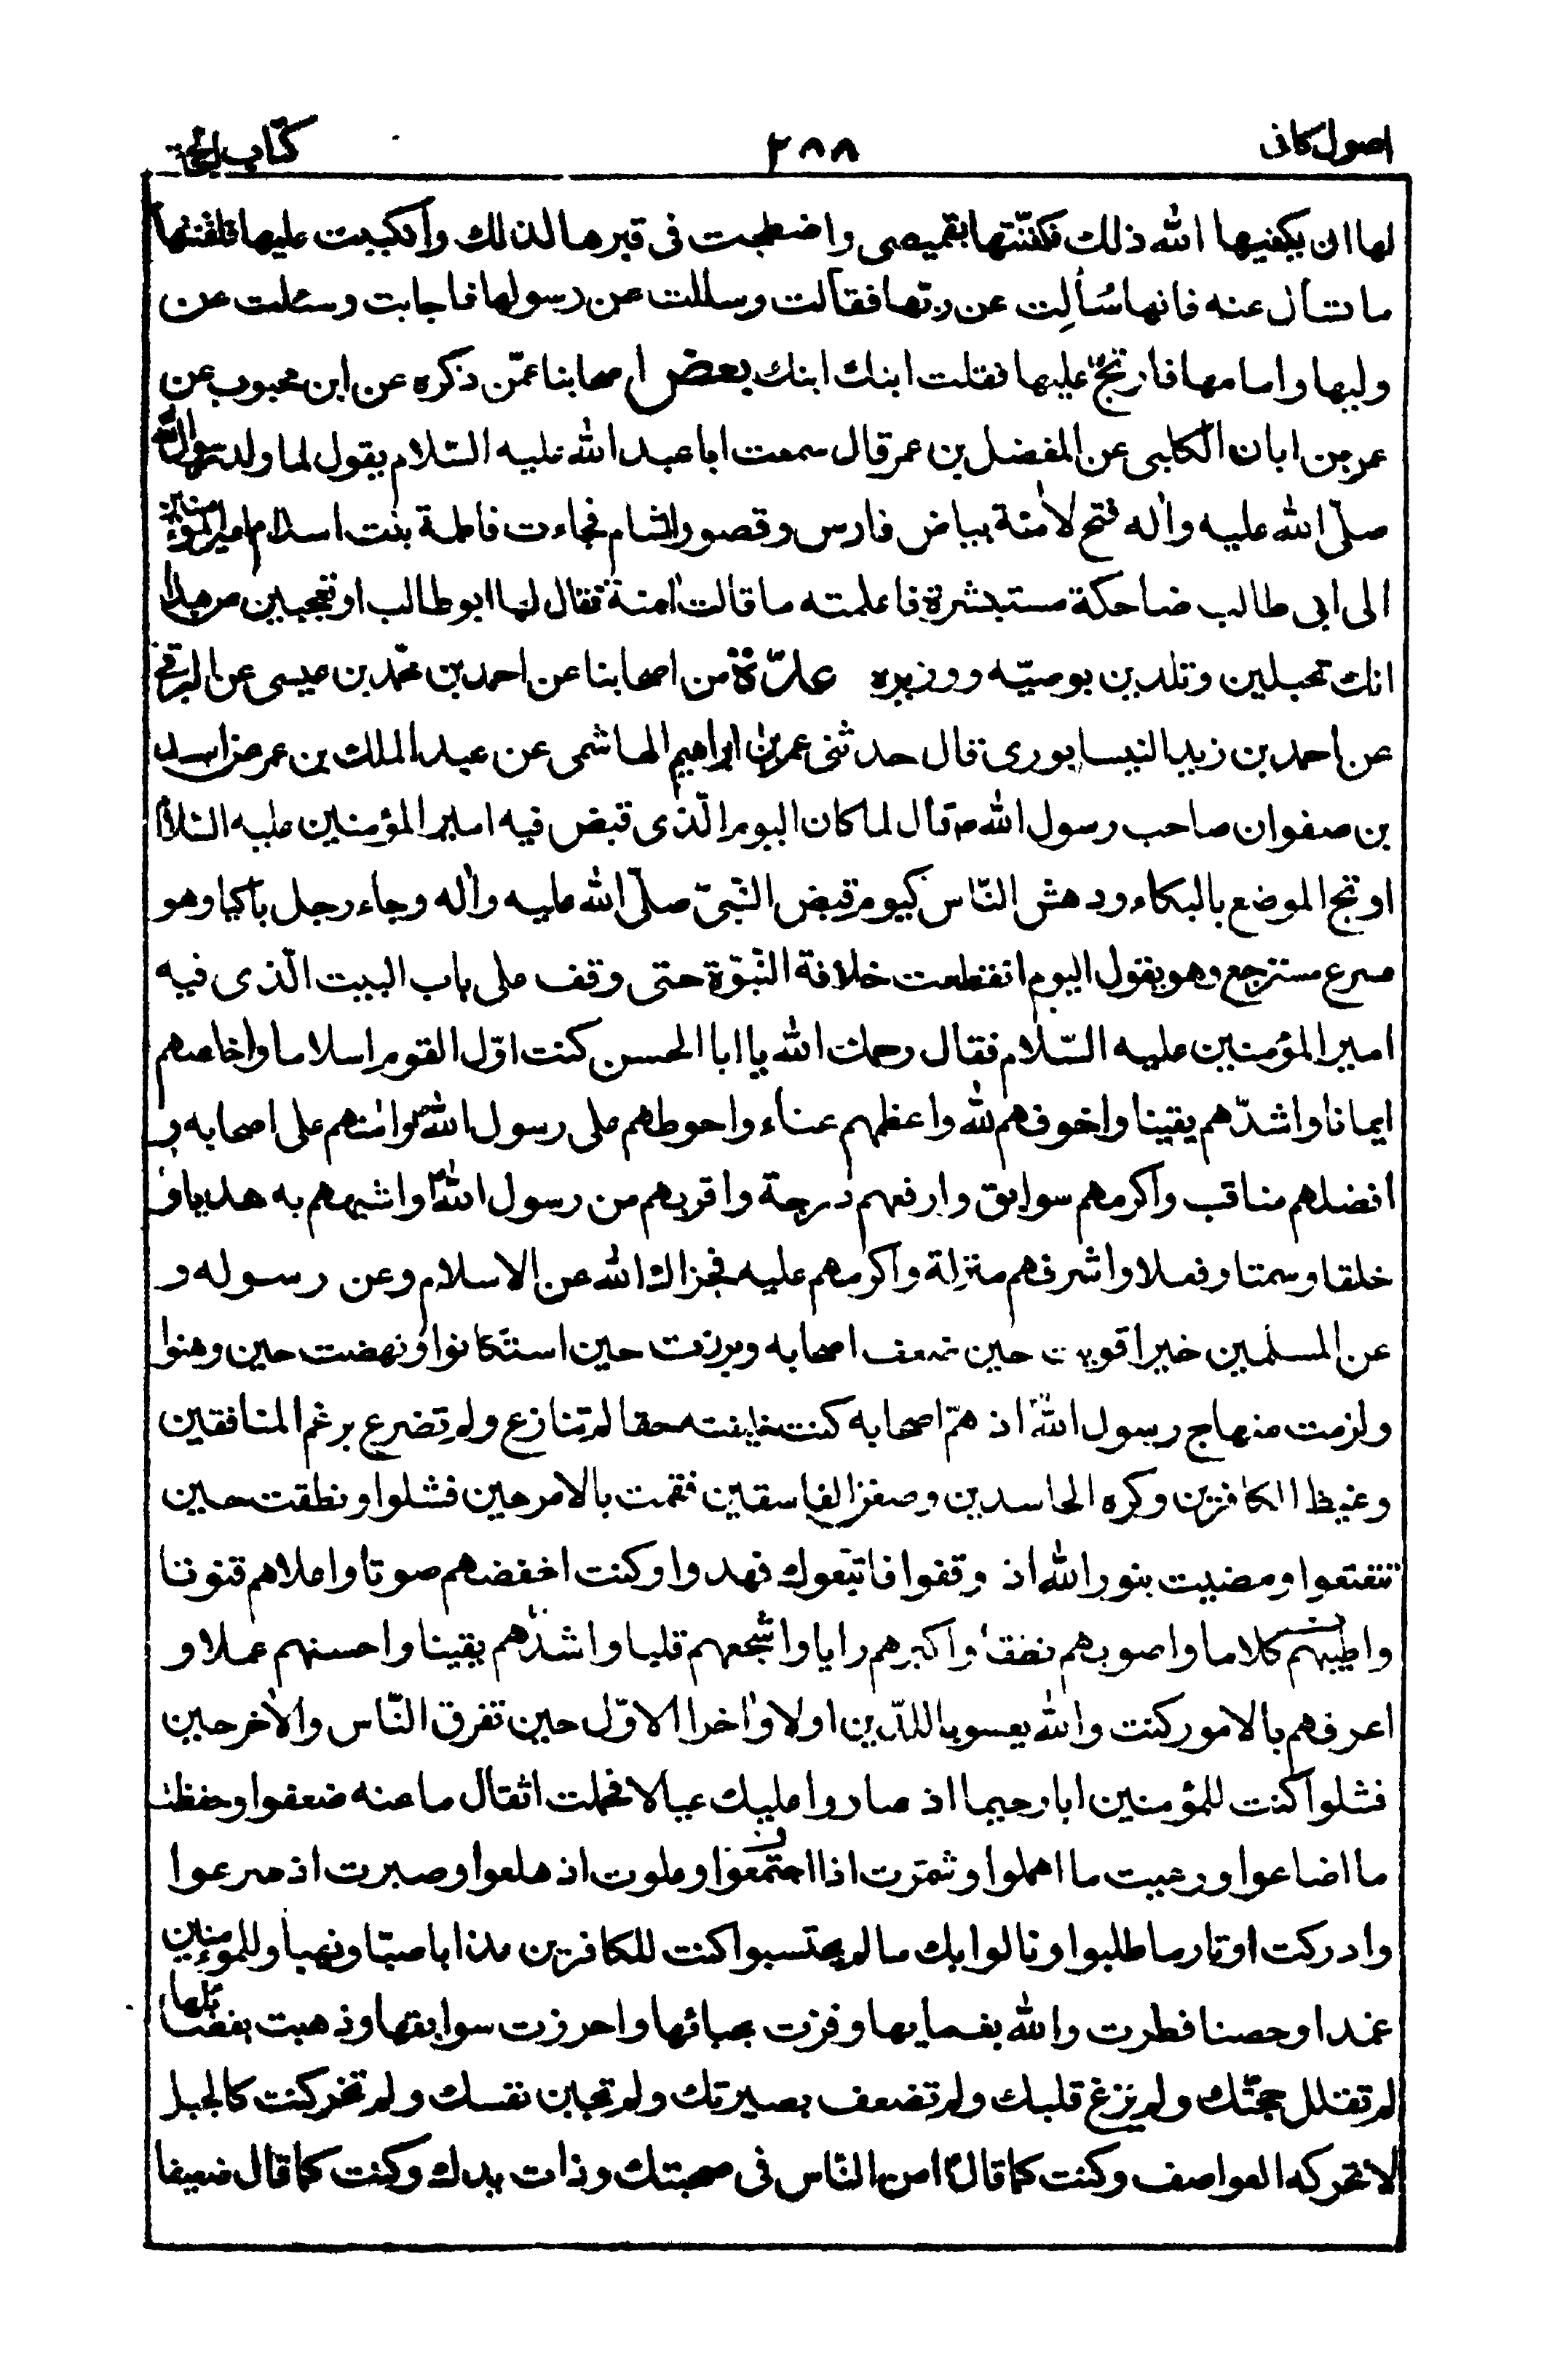 اصول كافى ٢٨٨ كتاب الحجة
لها ان يكفيها الله ذلك فكفّنتها بقميصى واضطجعت فى قبرها لذلك وانكببت عليها فلقّنتها
ما تسأل عنه فانها سُألِت عن ربّها فقالت وسالت عن رسولها فاجابت وسئلت عن
وليها وامامها فارتجّ عليها فقلت ابنك ابنك بعض اصحابنا عمّن ذكره عن ابن محبوب عن
عمر بن ابان الكلبى عن المفضل بن عمر قال سمعت ابا عبد الله عليه السّلام يقول لما ولد رسول الله
صلّى الله عليه واٰله فتح لاٰمنة بياض فارس وقصور الشام فجاءت فاطمة بنت اسد ام امير المؤمنين
الى ابى طالب ضاحكة مستبشرة فاعلمته ما قالت اٰمنة فقال لها ابو طالب اوتعجبين من هذا
انك تحبلين وتلدين بوصيّه ووزيره عدّة من اصحابنا عن احمد بن محمّد بن عيسى عن البرقى
عن احمد بن زيد النيسابورى قال حدثنى عمر بن ابراهيم الهاشمى عن عبد الملك بن عمر عن اسيد
بن صفوان صاحب رسول الله ص قال لما كان اليوم الّذى قبض فيه امير المؤمنين عليه السّلام
ارتج الموضع بالبكاء ودهش النّاس كيوم قبض النّبىّ صلّى الله عليه واٰله وجاء رجل باكيا وهو
مسرع مسترجع وهو يقول اليوم انقطعت خلافة النّبوّة حتى وقف على باب البيت الّذى فيه
امير المؤمنين عليه السّلام فقال رحمك الله يا ابا الحسن كنت اوّل القوم اسلاما واخلصهم
ايمانا واشدّهم يقينا واخوفهم لله واعظمهم عناء واحوطهم على رسول الله ص واٰمنهم على اصحابه و
افضلهم مناقب واكرمهم سوابق وارفعهم درجة واقربهم من رسول الله ص واشبههم به هديا و
خلقا وسمتا وفعلا واشرفهم منزلة واكرمهم عليه فجزاك الله عن الاسلام وعن رسوله و
عن المسلمين خيرا قويت حين ضعف اصحابه وبرزت حين استكانوا ونهضت حين وهنوا
ولزمت منهاج رسول الله ص اذ همّ اصحابه كنت خليفته حقا لم تنازع ولم تضرع برغم المنافقين
وغيظ الكافرين وكره الحاسدين وصغر الفاسقين فقمت بالامر حين فشلوا ونطقت حين
تتعتعوا ومضيت بنور الله اذ وقفوا فاتبعوك فهدوا وكنت اخفضهم صوتا واعلاهم قنوتا
واطيبهم كلاما واصوبهم نطقا واكبرهم رايا واشجعهم قلبا واشدّهم يقينا واحسنهم عملا و
اعرفهم بالامور كنت والله يعسوبا للدّين اولا واٰخرا الاوّل حين تفرق النّاس والاٰخر حين
فشلوا كنت للمؤمنين ابا رحيما اذ صاروا عليك عيالا فحملت اثقال ما عنه ضعفوا وحفظت
ما اضاعوا ورعيت ما اهملوا وشمّرت اذا اجتمعوا وعلوت اذ هلعوا وصبرت اذ سرعوا
وادركت اوتار ما طلبوا ونالوا بك ما لم يحتسبوا كنت للكافرين عذابا صبّا ونهبا وللمؤمنين
عمدا وحصنا فطرت والله بغمايها وفزت بحبائها واحرزت سوابقها وذهبت بفضائلها
لم تفلل حجّتك ولم يزغ قلبك ولم تضعف بصيرتك ولم تجبن نفسك ولم تخر كنت كالجبل
لا تحركه العواصف وكنت كما قال امن النّاس فى صحبتك وذات يدك وكنت كما قال ضعيفا